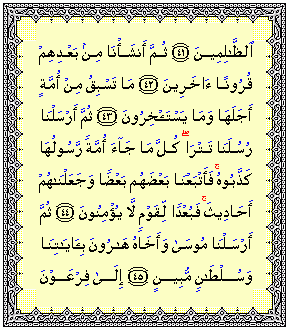 ٱلظَّٰلِمِينَ ٤١ ثُمَّ أَنشَأْنَا مِنۢ بَعْدِهِمْ
قُرُونًا ءَاخَرِينَ ٤٢ مَا تَسْبِقُ مِنْ أُمَّةٍ
أَجَلَهَا وَمَا يَسْتَـْٔخِرُونَ ٤٣ ثُمَّ أَرْسَلْنَا
رُسُلَنَا تَتْرَا ۖ كُلَّ مَا جَآءَ أُمَّةً رَّسُولُهَا
كَذَّبُوهُ ۚ فَأَتْبَعْنَا بَعْضَهُم بَعْضًا وَجَعَلْنَٰهُمْ
أَحَادِيثَ ۚ فَبُعْدًا لِّقَوْمٍ لَّا يُؤْمِنُونَ ٤٤ ثُمَّ
أَرْسَلْنَا مُوسَىٰ وَأَخَاهُ هَٰرُونَ بِـَٔايَٰتِنَا
وَسُلْطَٰنٍ مُّبِينٍ ٤٥ إِلَىٰ فِرْعَوْنَ